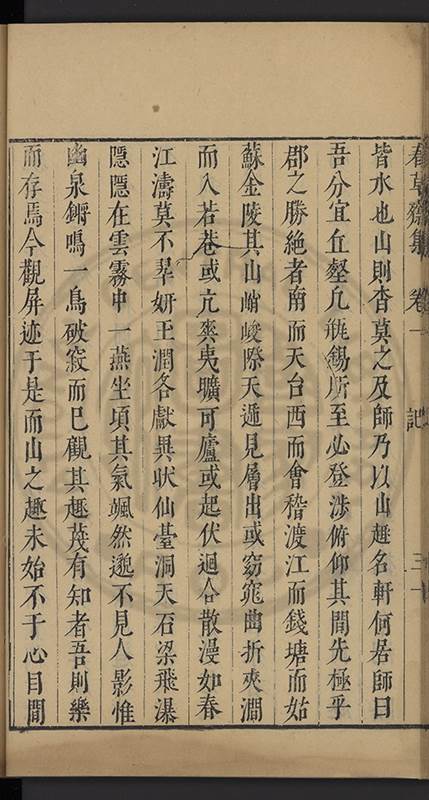 春草齋集 卷一 記 三十
皆水也山則杳莫之及師乃以山趣名軒何居師曰
吾分宜丘壑凡甁錫所至必登渉俯仰其間先極乎
郡之勝絶者南而天台西而會稽渡江而錢塘而姑
蘇金陵其山峭峻際天遞見層出或窈窕曲折夾澗
而入若巷或亢爽夷曠可廬或起伏迴合散漫如春
江濤莫不翠妍玉潤各獻異狀仙臺洞天石梁飛瀑
隱隱在雲霧中一燕坐頃其氣颯然邈不見人影惟
幽泉鏘鳴一鳥破寂而已觀其趣蔑有知者吾則樂
而存焉今觀屏迹于是而山之趣未始不于心目間